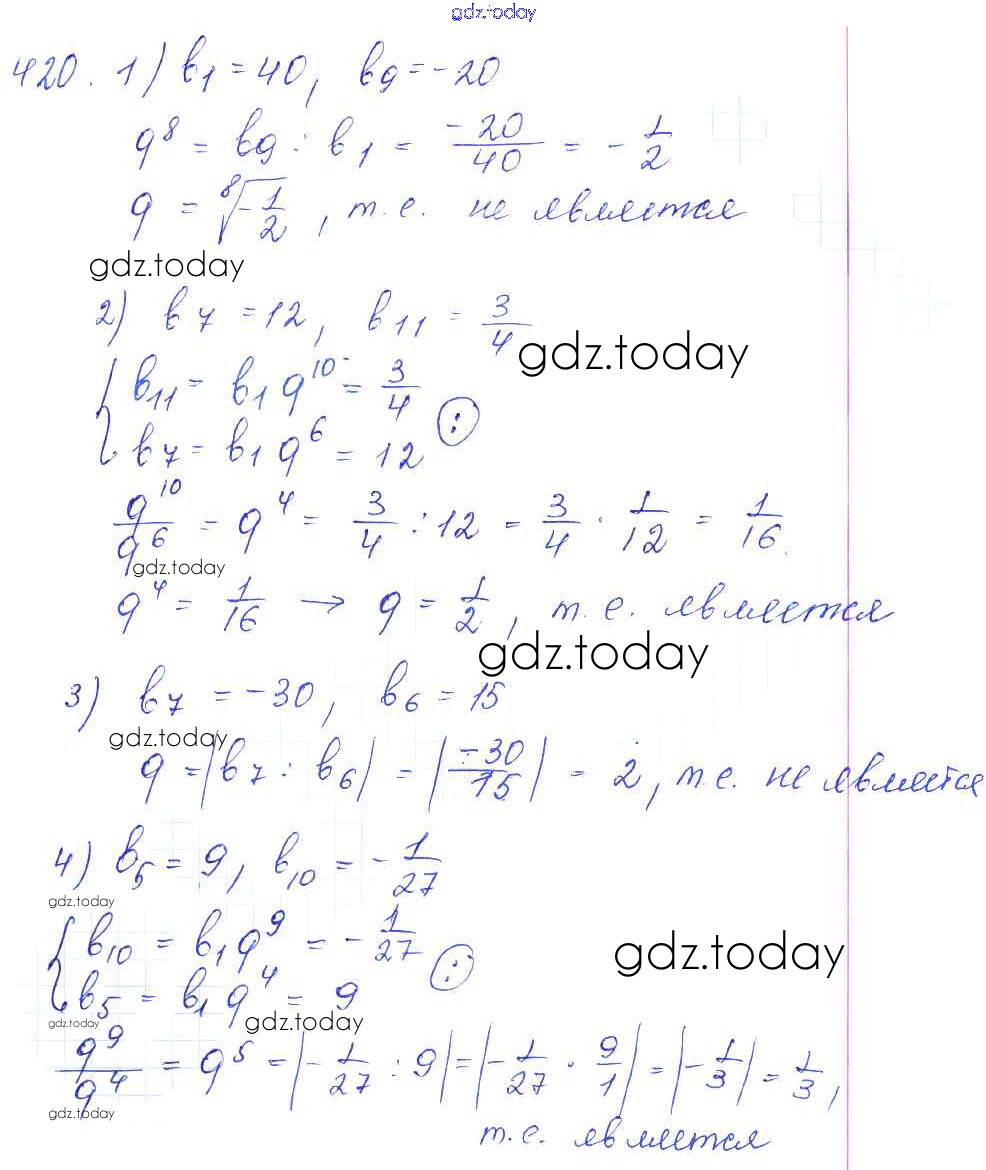 gdz.today
420. 1) b₁ = 40, b₉ = -20
q⁸ = b₉ : b₁ = -20/40 = -1/2
q = ⁸√(-1/2), т.е. не является
gdz.today
2) b₇ = 12, b₁₁ = 3/4
gdz.today
{ b₁₁ = b₁q¹⁰ = 3/4
b₇ = b₁q⁶ = 12 (:)
q¹⁰/q⁶ = q⁴ = 3/4 : 12 = 3/4 · 1/12 = 1/16.
gdz.today
q⁴ = 1/16 → q = 1/2, т.е. является
gdz.today
3) b₇ = -30, b₆ = 15
gdz.today
q = |b₇ : b₆| = |-30/15| = 2, т.е. не является
4) b₅ = 9, b₁₀ = -1/27
gdz.today
{ b₁₀ = b₁q⁹ = -1/27
gdz.today
b₅ = b₁q⁴ = 9 (:)
gdz.today
gdz.today
q⁹/q⁴ = q⁵ = |-1/27 : 9| = |-1/27 · 9/1| = |-1/3| = 1/3,
gdz.today
т.е. является